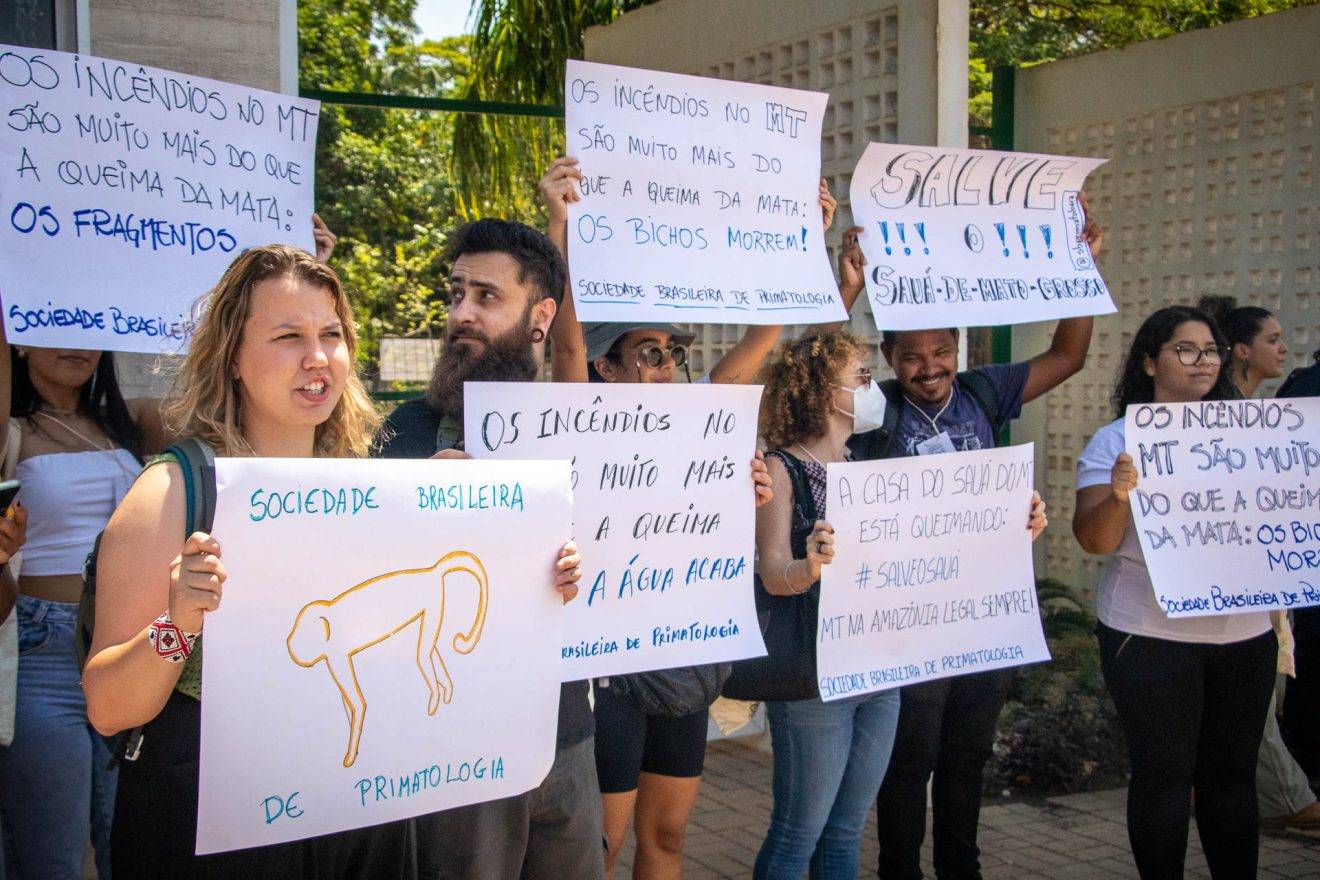 OS INCÊNDIOS NO MT
SÃO MUITO MAIS DO QUE
A QUEIMA DA MATA:
OS FRAGMENTOS
SOCIEDADE BRASILEI
OS INCÊNDIOS NO MT
SÃO MUITO MAIS DO
QUE A QUEIMA DA MATA:
OS BICHOS MORREM!
SOCIEDADE BRASILEIRA DE PRIMATOLOGIA
SALVE
!!! O !!!
SAUÁ-DE-MATO-GROSSO
SOCIEDADE BRASILEIRA
DE PRIMATOLOGIA
OS INCÊNDIOS NO
MUITO MAIS
A QUEIMA
A ÁGUA ACABA
RASILEIRA DE PRIMATOLOGIA
A CASA DO SAUÁ DO MT
ESTÁ QUEIMANDO:
#SALVEOSAUÁ
MT NA AMAZÔNIA LEGAL SEMPRE!
SOCIEDADE BRASILEIRA DE PRIMATOLOGIA
OS INCÊNDIOS
MT SÃO MUITO
DO QUE A QUEIM
DA MATA: OS BIC
MORR
SOCIEDADE BRASILEIRA DE PRI